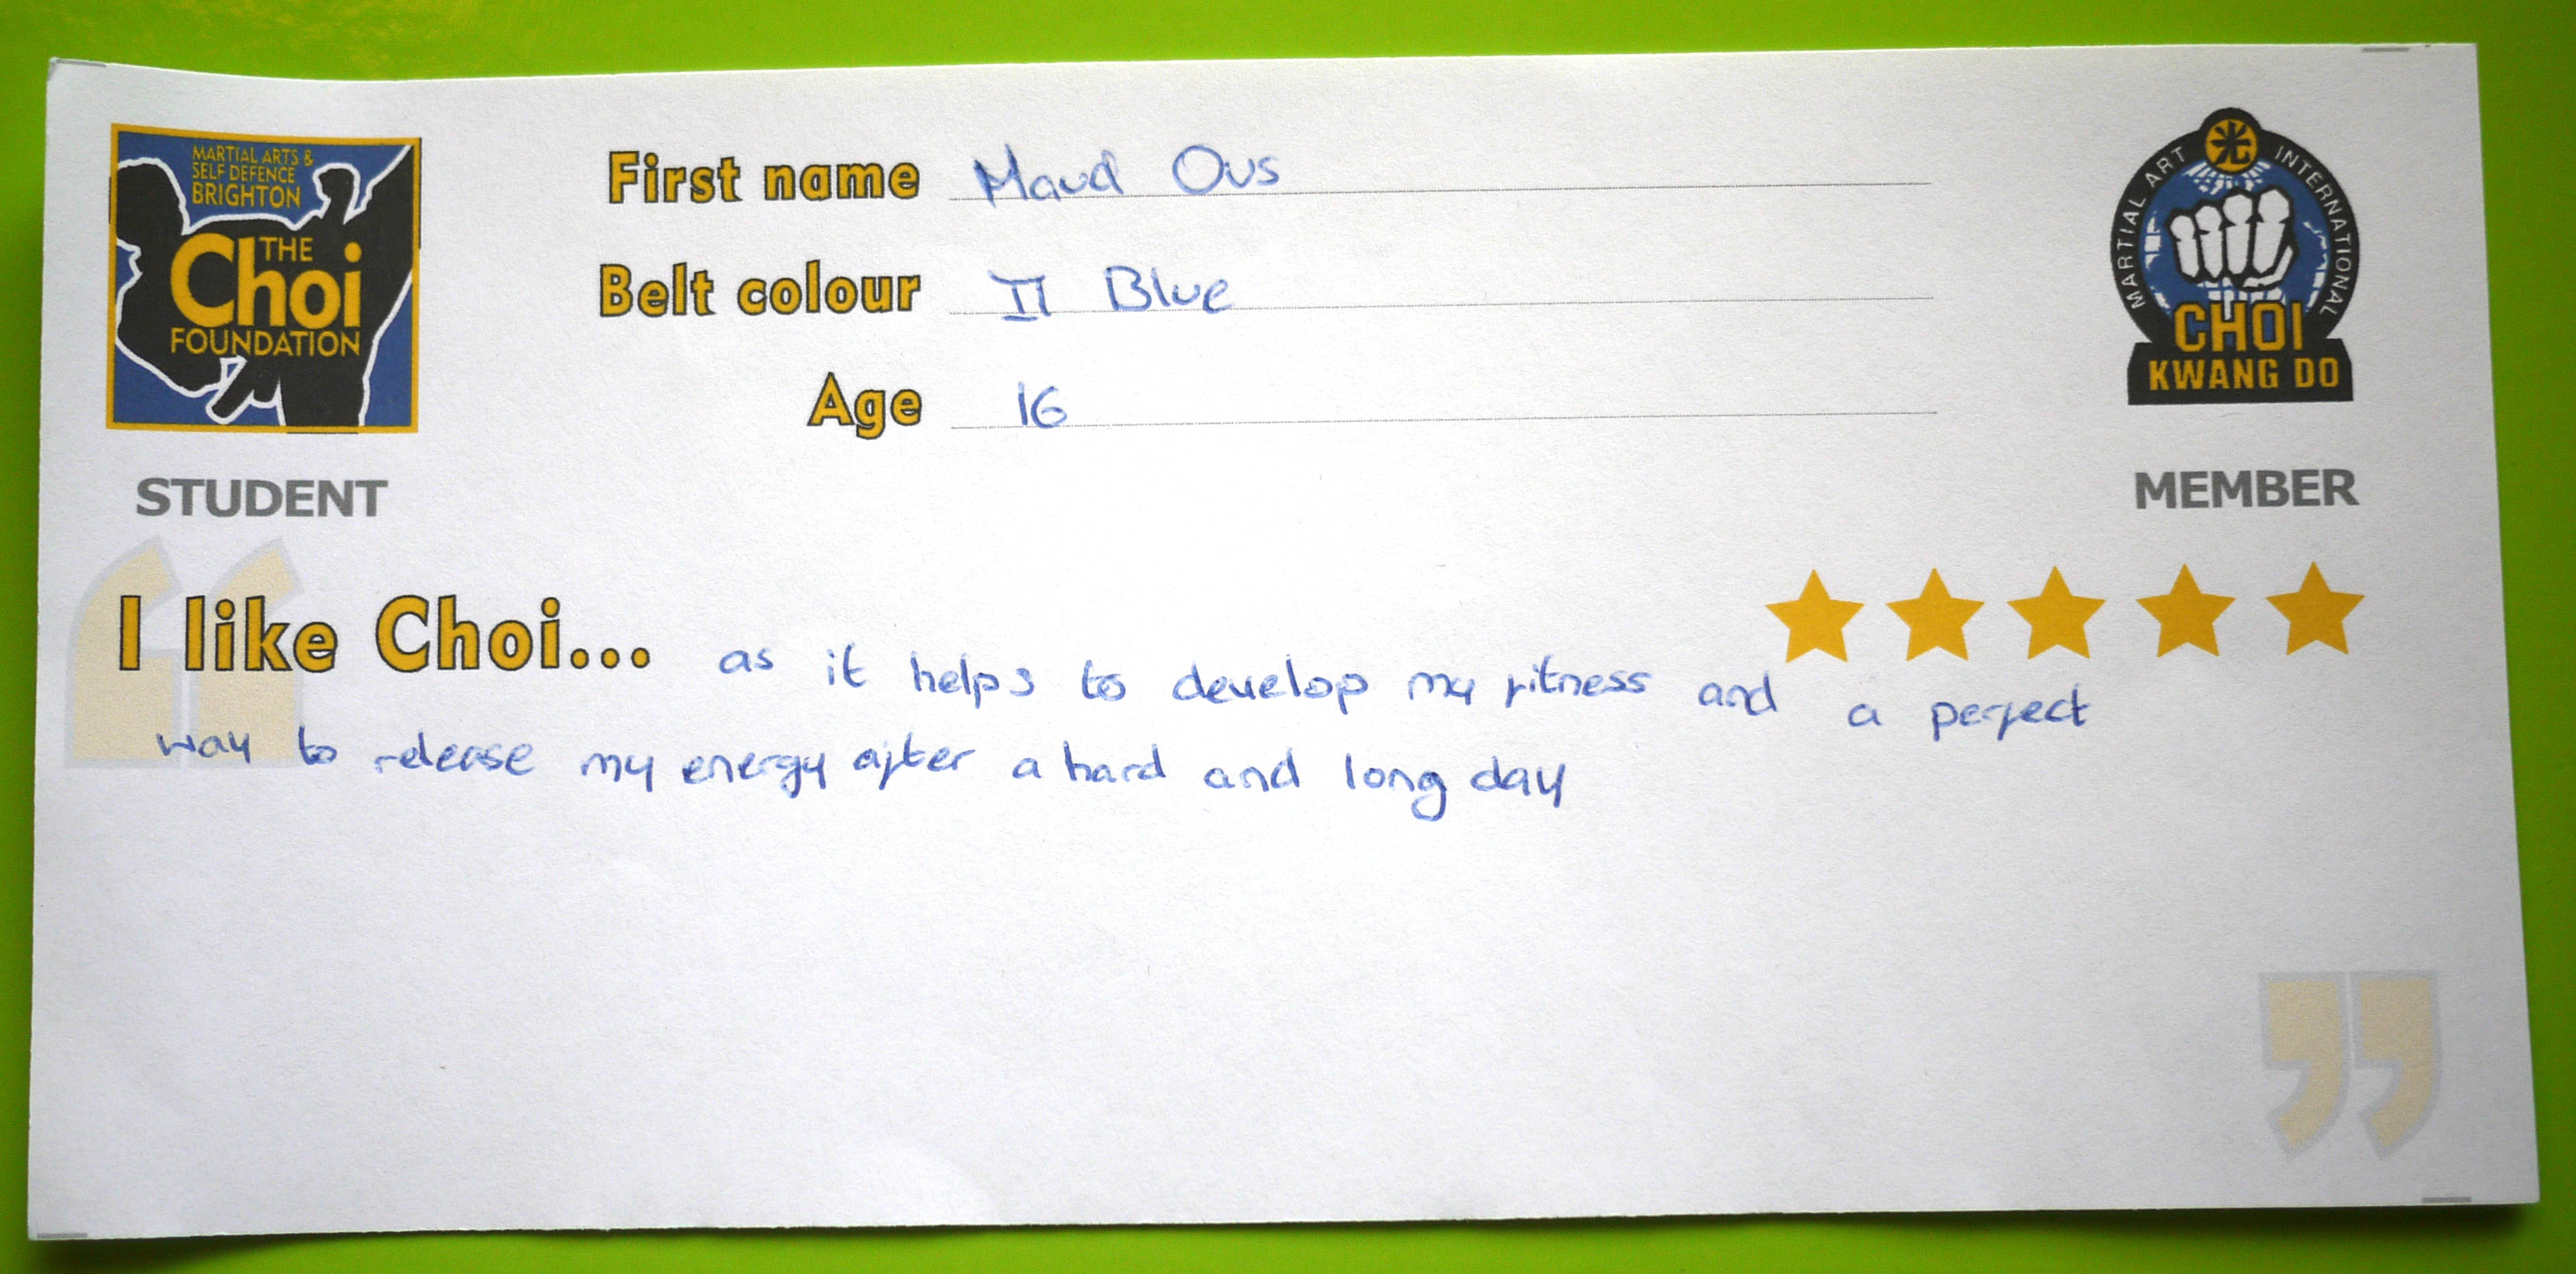 MARTIAL ARTS &
SELF DEFENCE
BRIGHTON
THE
Choi
FOUNDATION
STUDENT
First name Maud Ous
Belt colour II Blue
Age 16
MARTIAL ART INTERNATIONAL
CHOI
KWANG DO
MEMBER
I like Choi... as it helps to develop my fitness and a perfect
way to release my energy after a hard and long day